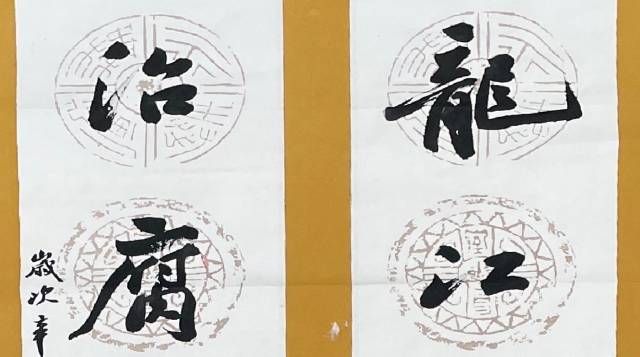 龍江
治腐
歲次辛